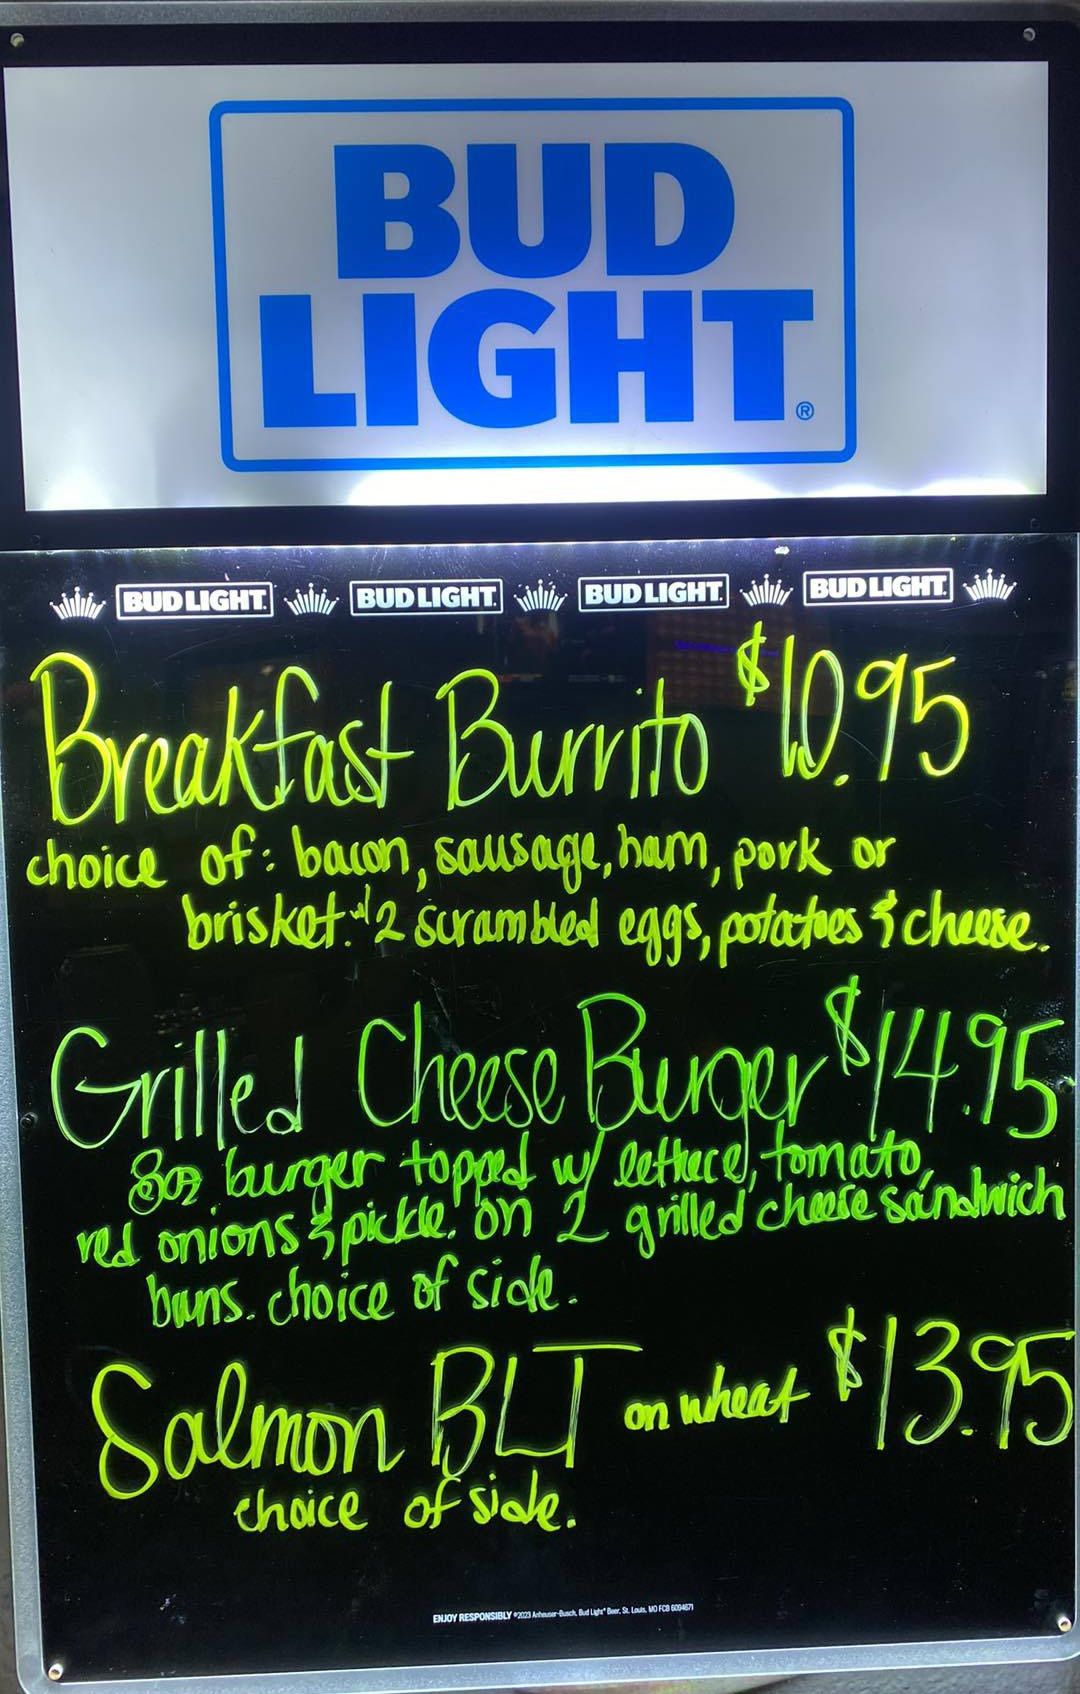 BUD
LIGHT®
BUD LIGHT. BUD LIGHT. BUD LIGHT. BUD LIGHT.
Breakfast Burrito $10.95
choice of: bacon, sausage, ham, pork or
brisket. w/ 2 scrambled eggs, potatoes & cheese.
Grilled Cheese Burger $14.95
8oz burger topped w/ lettuce, tomato,
red onions & pickle. on 2 grilled cheese sandwich
buns. choice of side.
Salmon BLT on wheat $13.95
choice of side.
ENJOY RESPONSIBLY ©2023 Anheuser-Busch, Bud Light® Beer, St. Louis, MO FCB 6094671